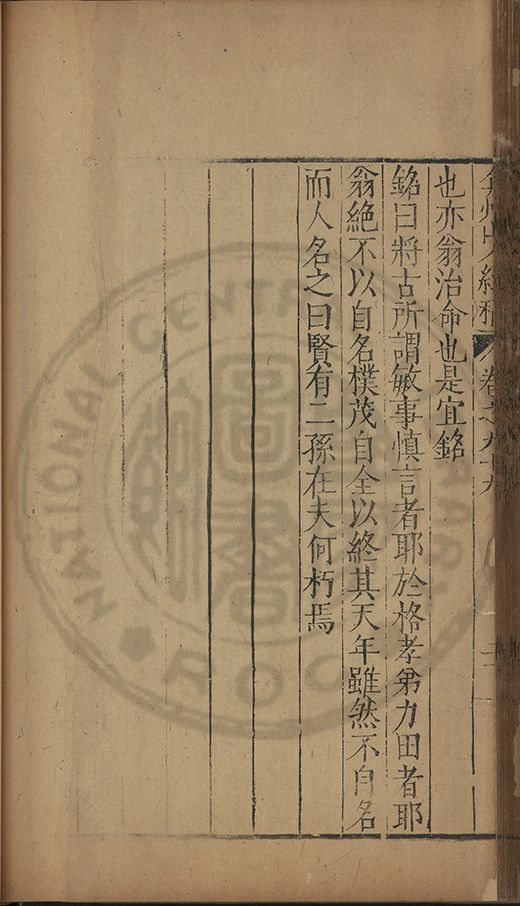 弇州山人續稿 卷之九十九
也亦翁治命也是宜銘
銘曰將古所謂敏事慎言者耶於格孝弟力田者耶
翁絕不以自名樸茂自全以終其天年雖然不自名
而人名之曰賢有二孫在夫何朽焉